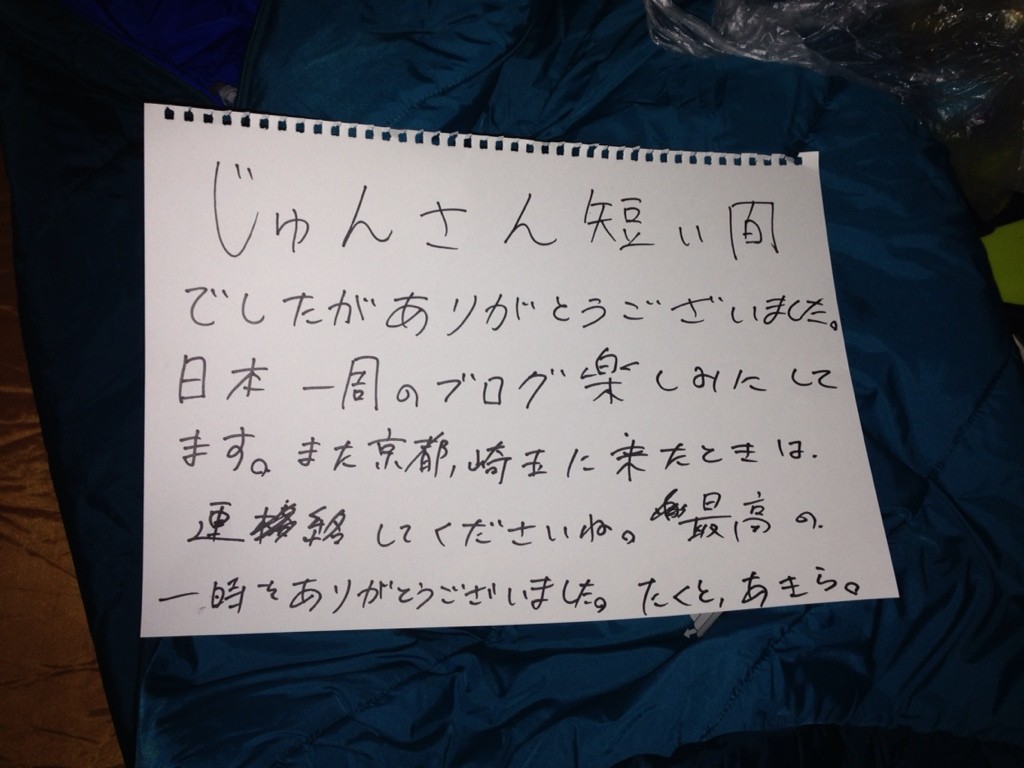 じゅんさん短い間
でしたがありがとうございました。
日本一周のブログ楽しみにして
ます。また京都,崎玉に来たときは、
連絡してくださいね。最高の
一時をありがとうございました。たくと,あきら。